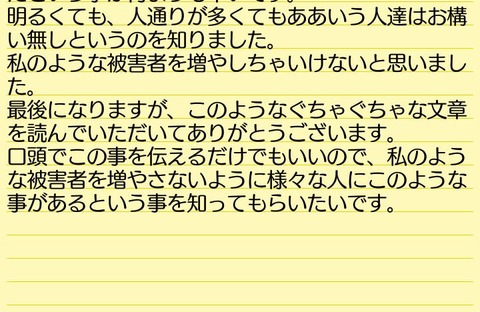 明るくても、人通りが多くてもああいう人達はお構
い無しというのを知りました。
私のような被害者を増やしちゃいけないと思いまし
た。
最後になりますが、このようなぐちゃぐちゃな文章
を読んでいただいてありがとうございます。
口頭でこの事を伝えるだけでもいいので、私のよう
な被害者を増やさないように様々な人にこのような
事があるという事を知ってもらいたいです。